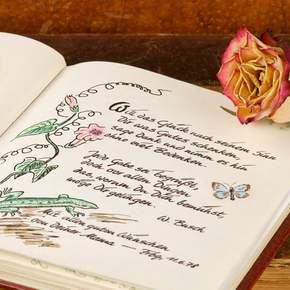 Will das Glück nach seinem Sinn
Dir was Gutes schenken,
sage Dank und nimm es hin
ohne viel Bedenken.
Jede Gabe sei begrüßt,
doch vor allen Dingen:
das, worum Du Dich bemühst,
möge Dir gelingen.
W. Busch
Mit allen guten Wünschen